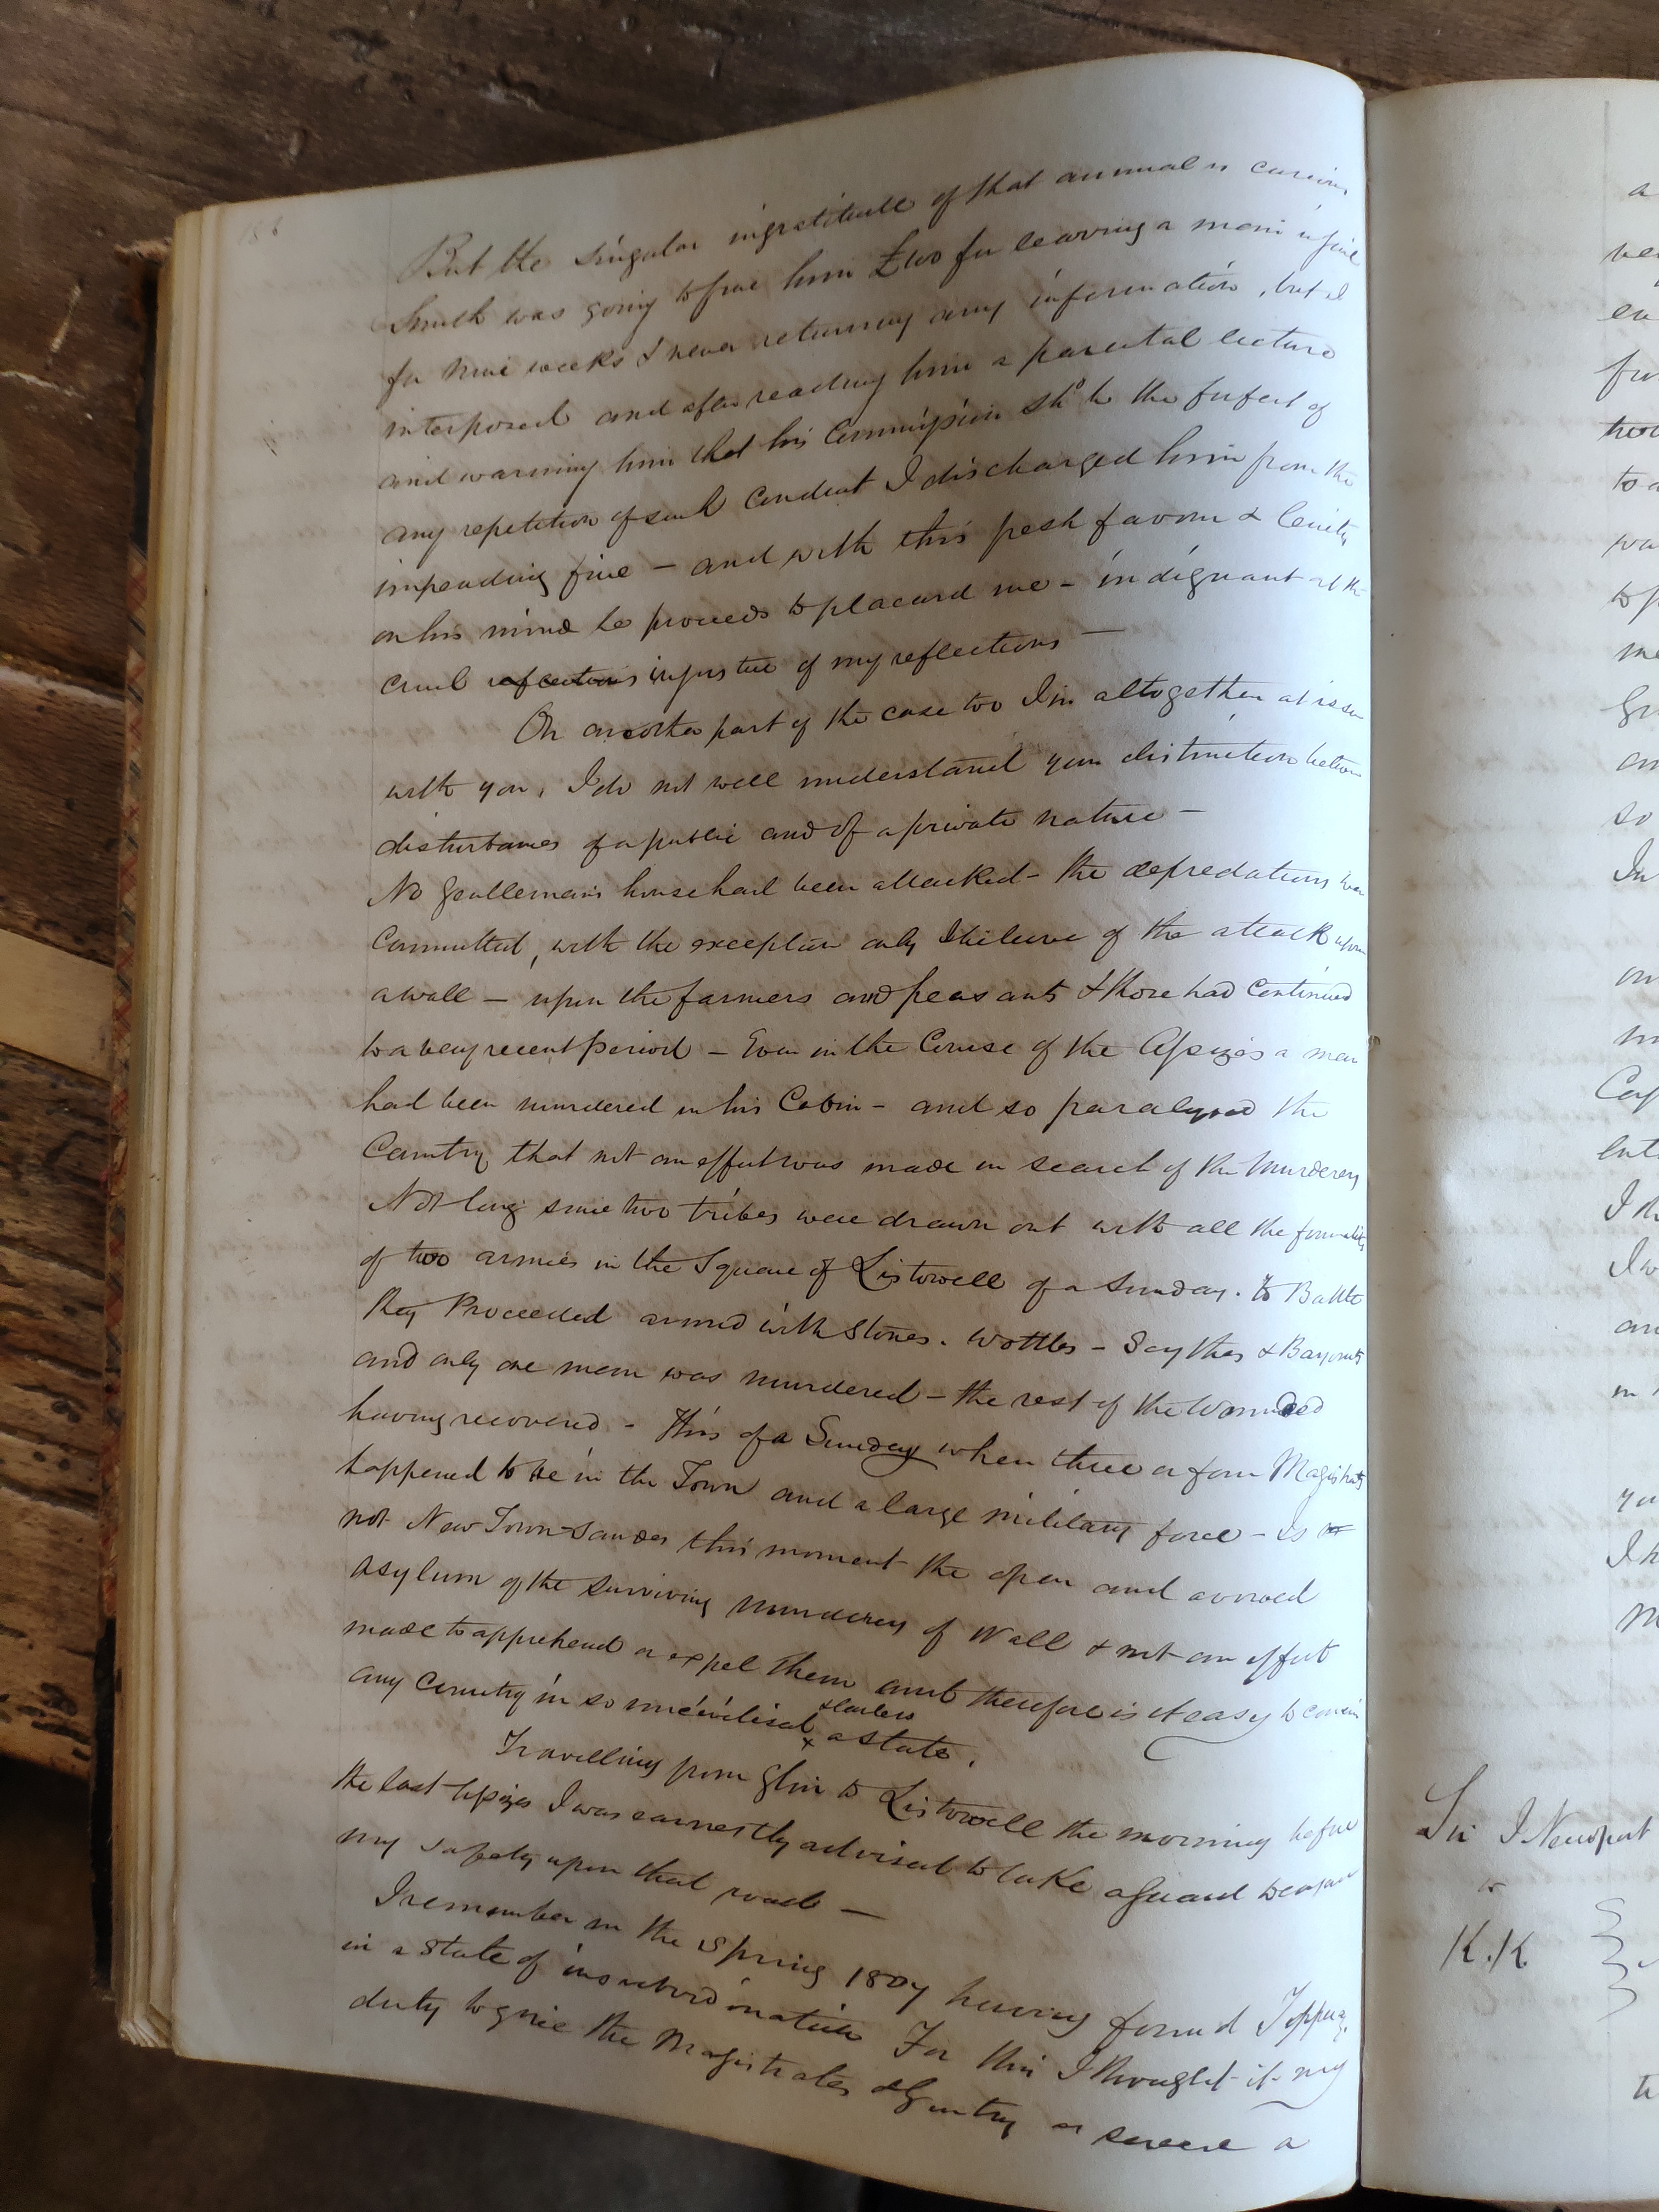 186
But the singular ingratitude of that animal is curious
Smith was going to fine him £100 for leaving a man in jail
for nine weeks & never returning any information, but I
interposed and after reading him a parental lecture
and warning him that his Commission shd be the forfeit of
any repetition of such conduct I discharged him from the
impending fine — and with this fresh favour & lenity
on his mind he proceeds to placard me – indignant at the
cruel reflections injustice of my reflections —
On another part of the case too I'm altogether at issue
with you, I do not well understand your distinction between
disturbances of a public and of a private nature —
No Gentleman's house had been attacked – the depredations were
Committed, with the exception only I believe of the attack upon
a wall — upon the farmers and peasants & those had Continued
to a very recent period – Even in the Course of the Assizes a man
had been murdered in his Cabin – and so paralyzed the
Country that not an effort was made in search of the Murderers
Not long since two tribes were drawn out with all the formality
of two armies in the Square of Listowell of a Sunday. to Battle
they Proceeded armed with Stones. Wattles – Scythes & Bayonets
and only one man was murdered – the rest of the Wounded
having recovered – This of a Sunday when three or four Magistrates
happened to be in the Town and a large military force – Is
not New Town Sandes this moment the open and avowed
asylum of the surviving murderers of Wall & not an effort
made to apprehend or expel them and therefore is it easy to
any Country in so uncivilised & lawless a state.
Travelling from Glin to Listowell the morning before
the last Assizes I was earnestly advised to take a Guard
my safety upon that road —
I remember in the Spring 1807 having found Tipperary
in a State of insubordination For this I thought it my
duty to give the Magistrates & Gentry as severe a
a
to a
me
so
In
I
I w
in
Sir J Newport
to
K.K